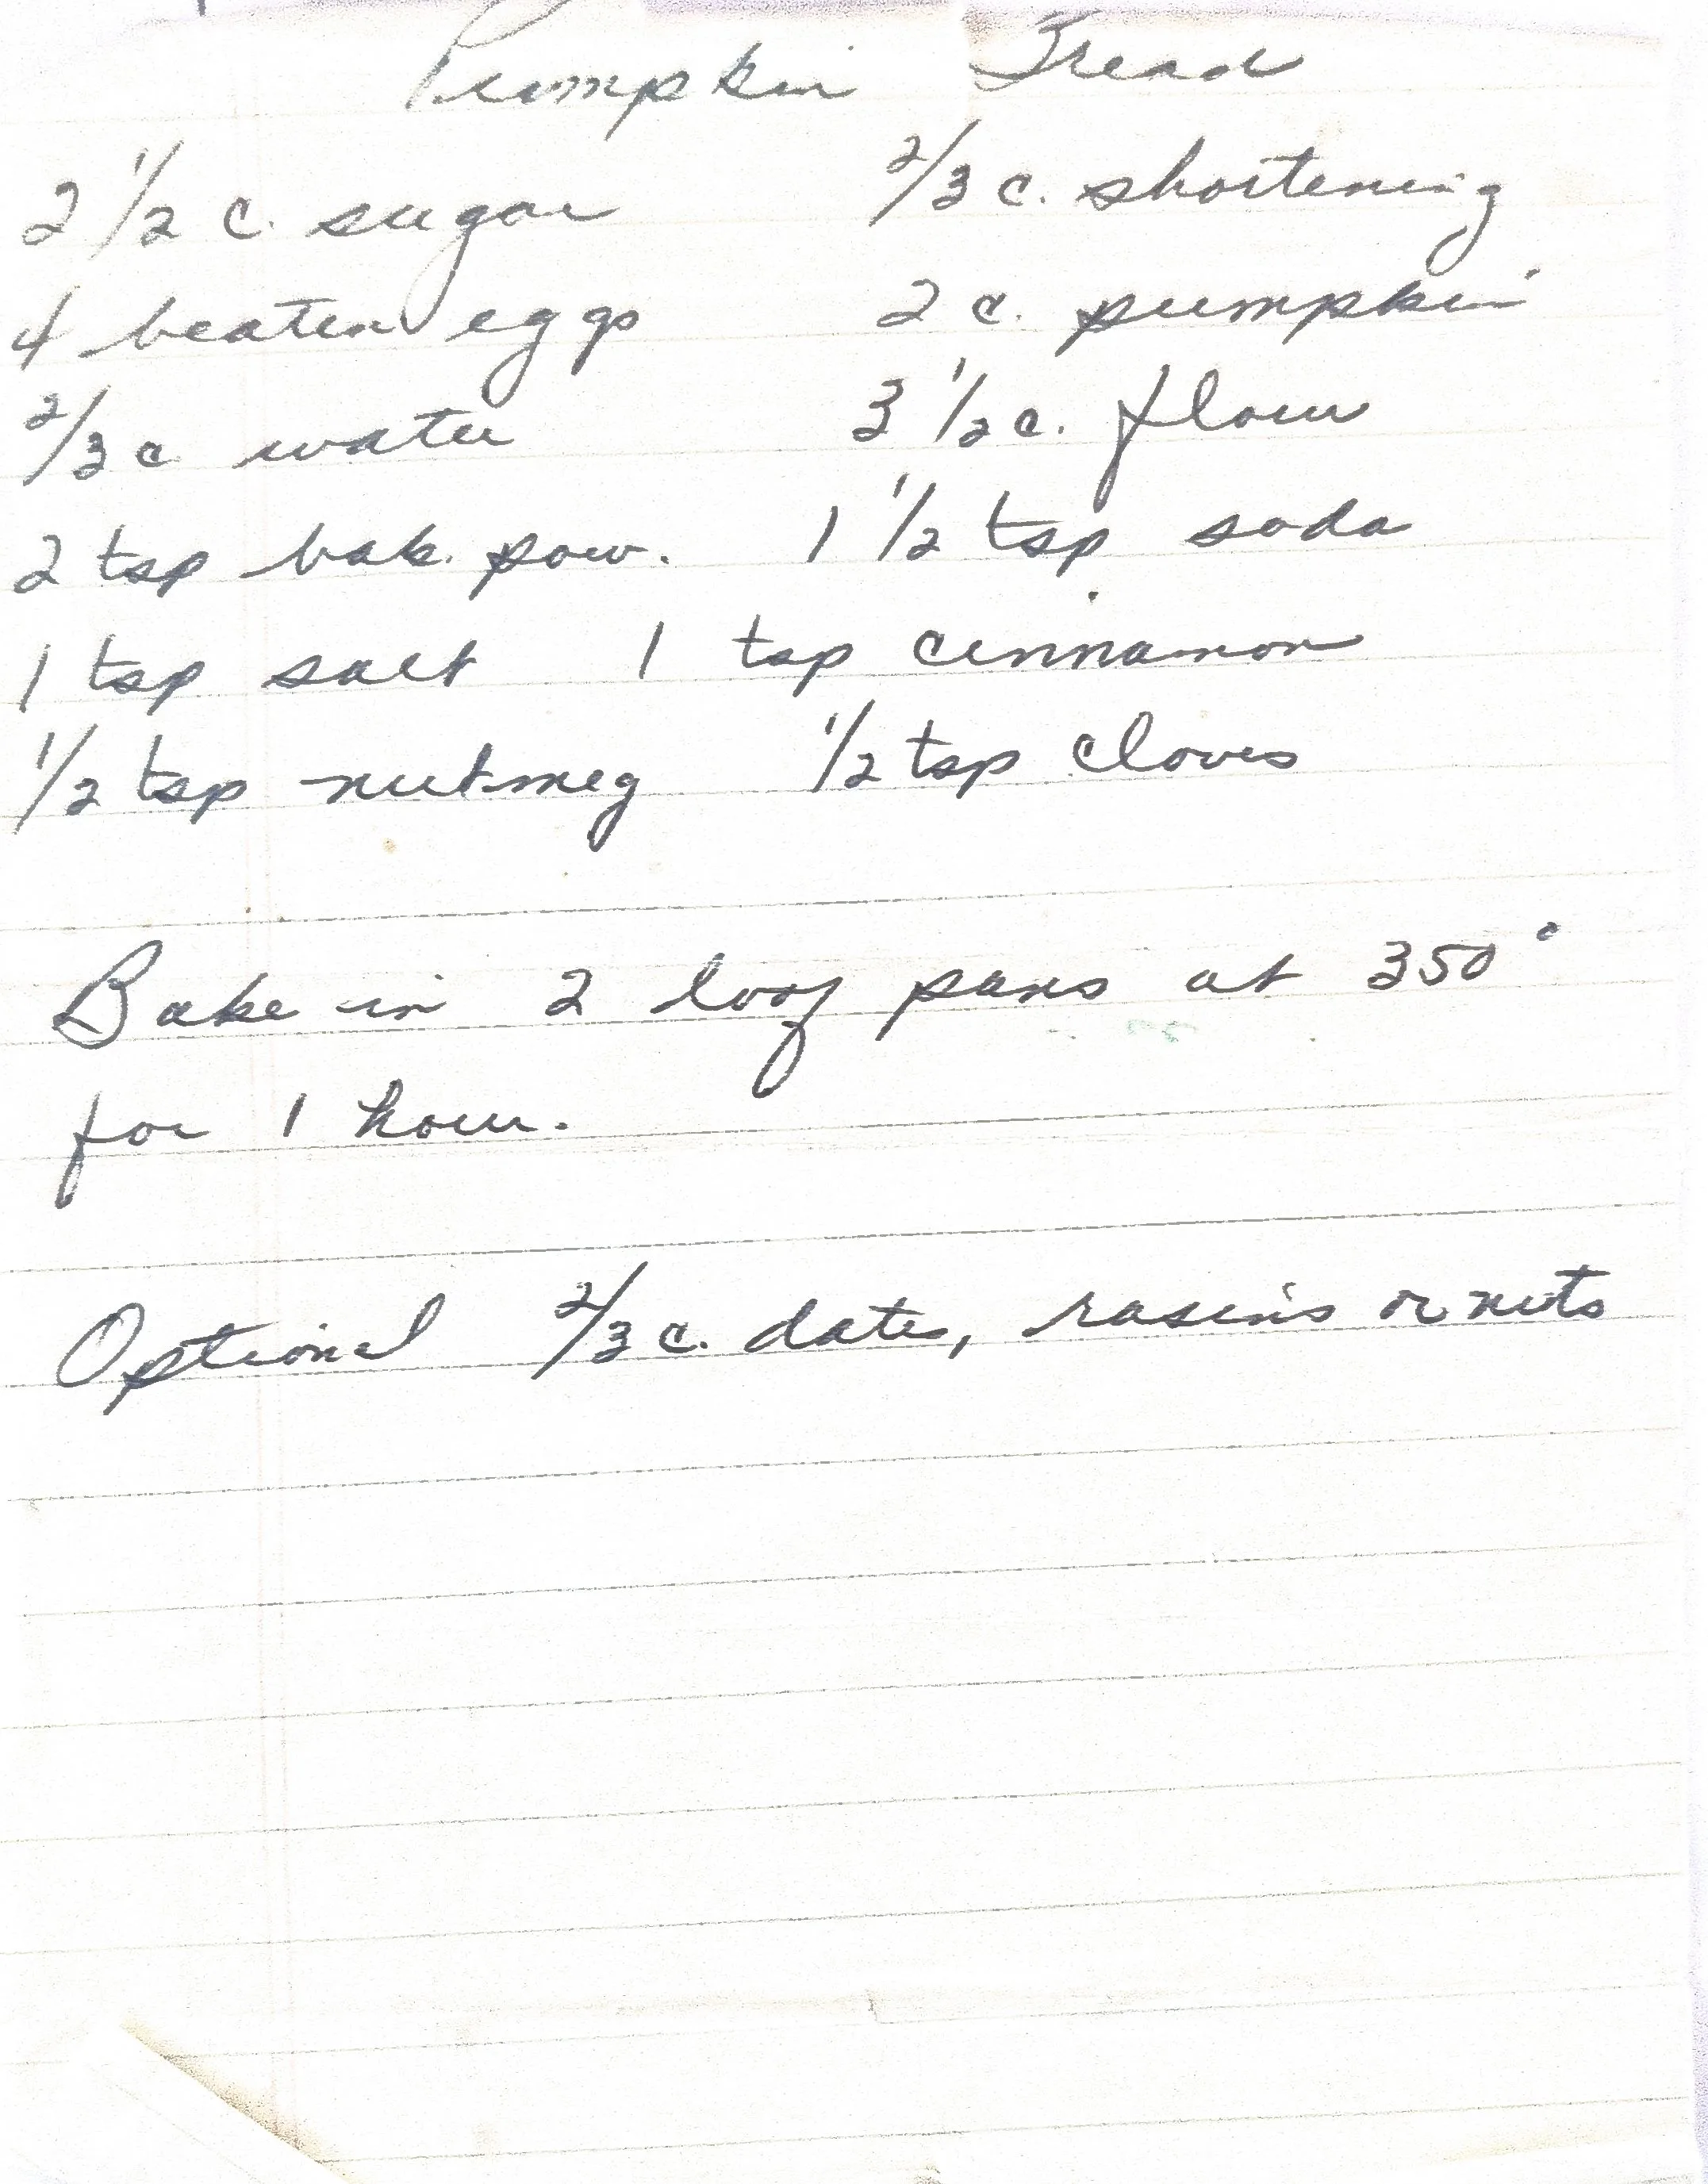 Pumpkin Bread
2 1/2 c. sugar 2/3 c. shortening
4 beaten eggs 2 c. pumpkin
2/3 c water 3 1/2 c. flour
2 tsp bak. pow. 1 1/2 tsp soda
1 tsp salt 1 tsp cinnamon
1/2 tsp nutmeg 1/2 tsp cloves
Bake in 2 loaf pans at 350°
for 1 hour.
Optional 2/3 c. dates, rasins or nuts